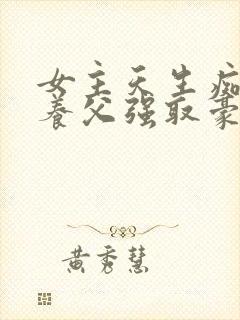 女主天生痴
养父强取豪
黄秀慧